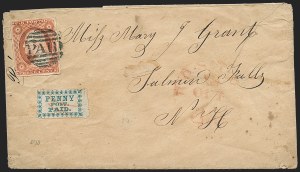 PAID
Miss Mary J Grant
Salmon Falls
N. H
PENNY
POST.
PAID.